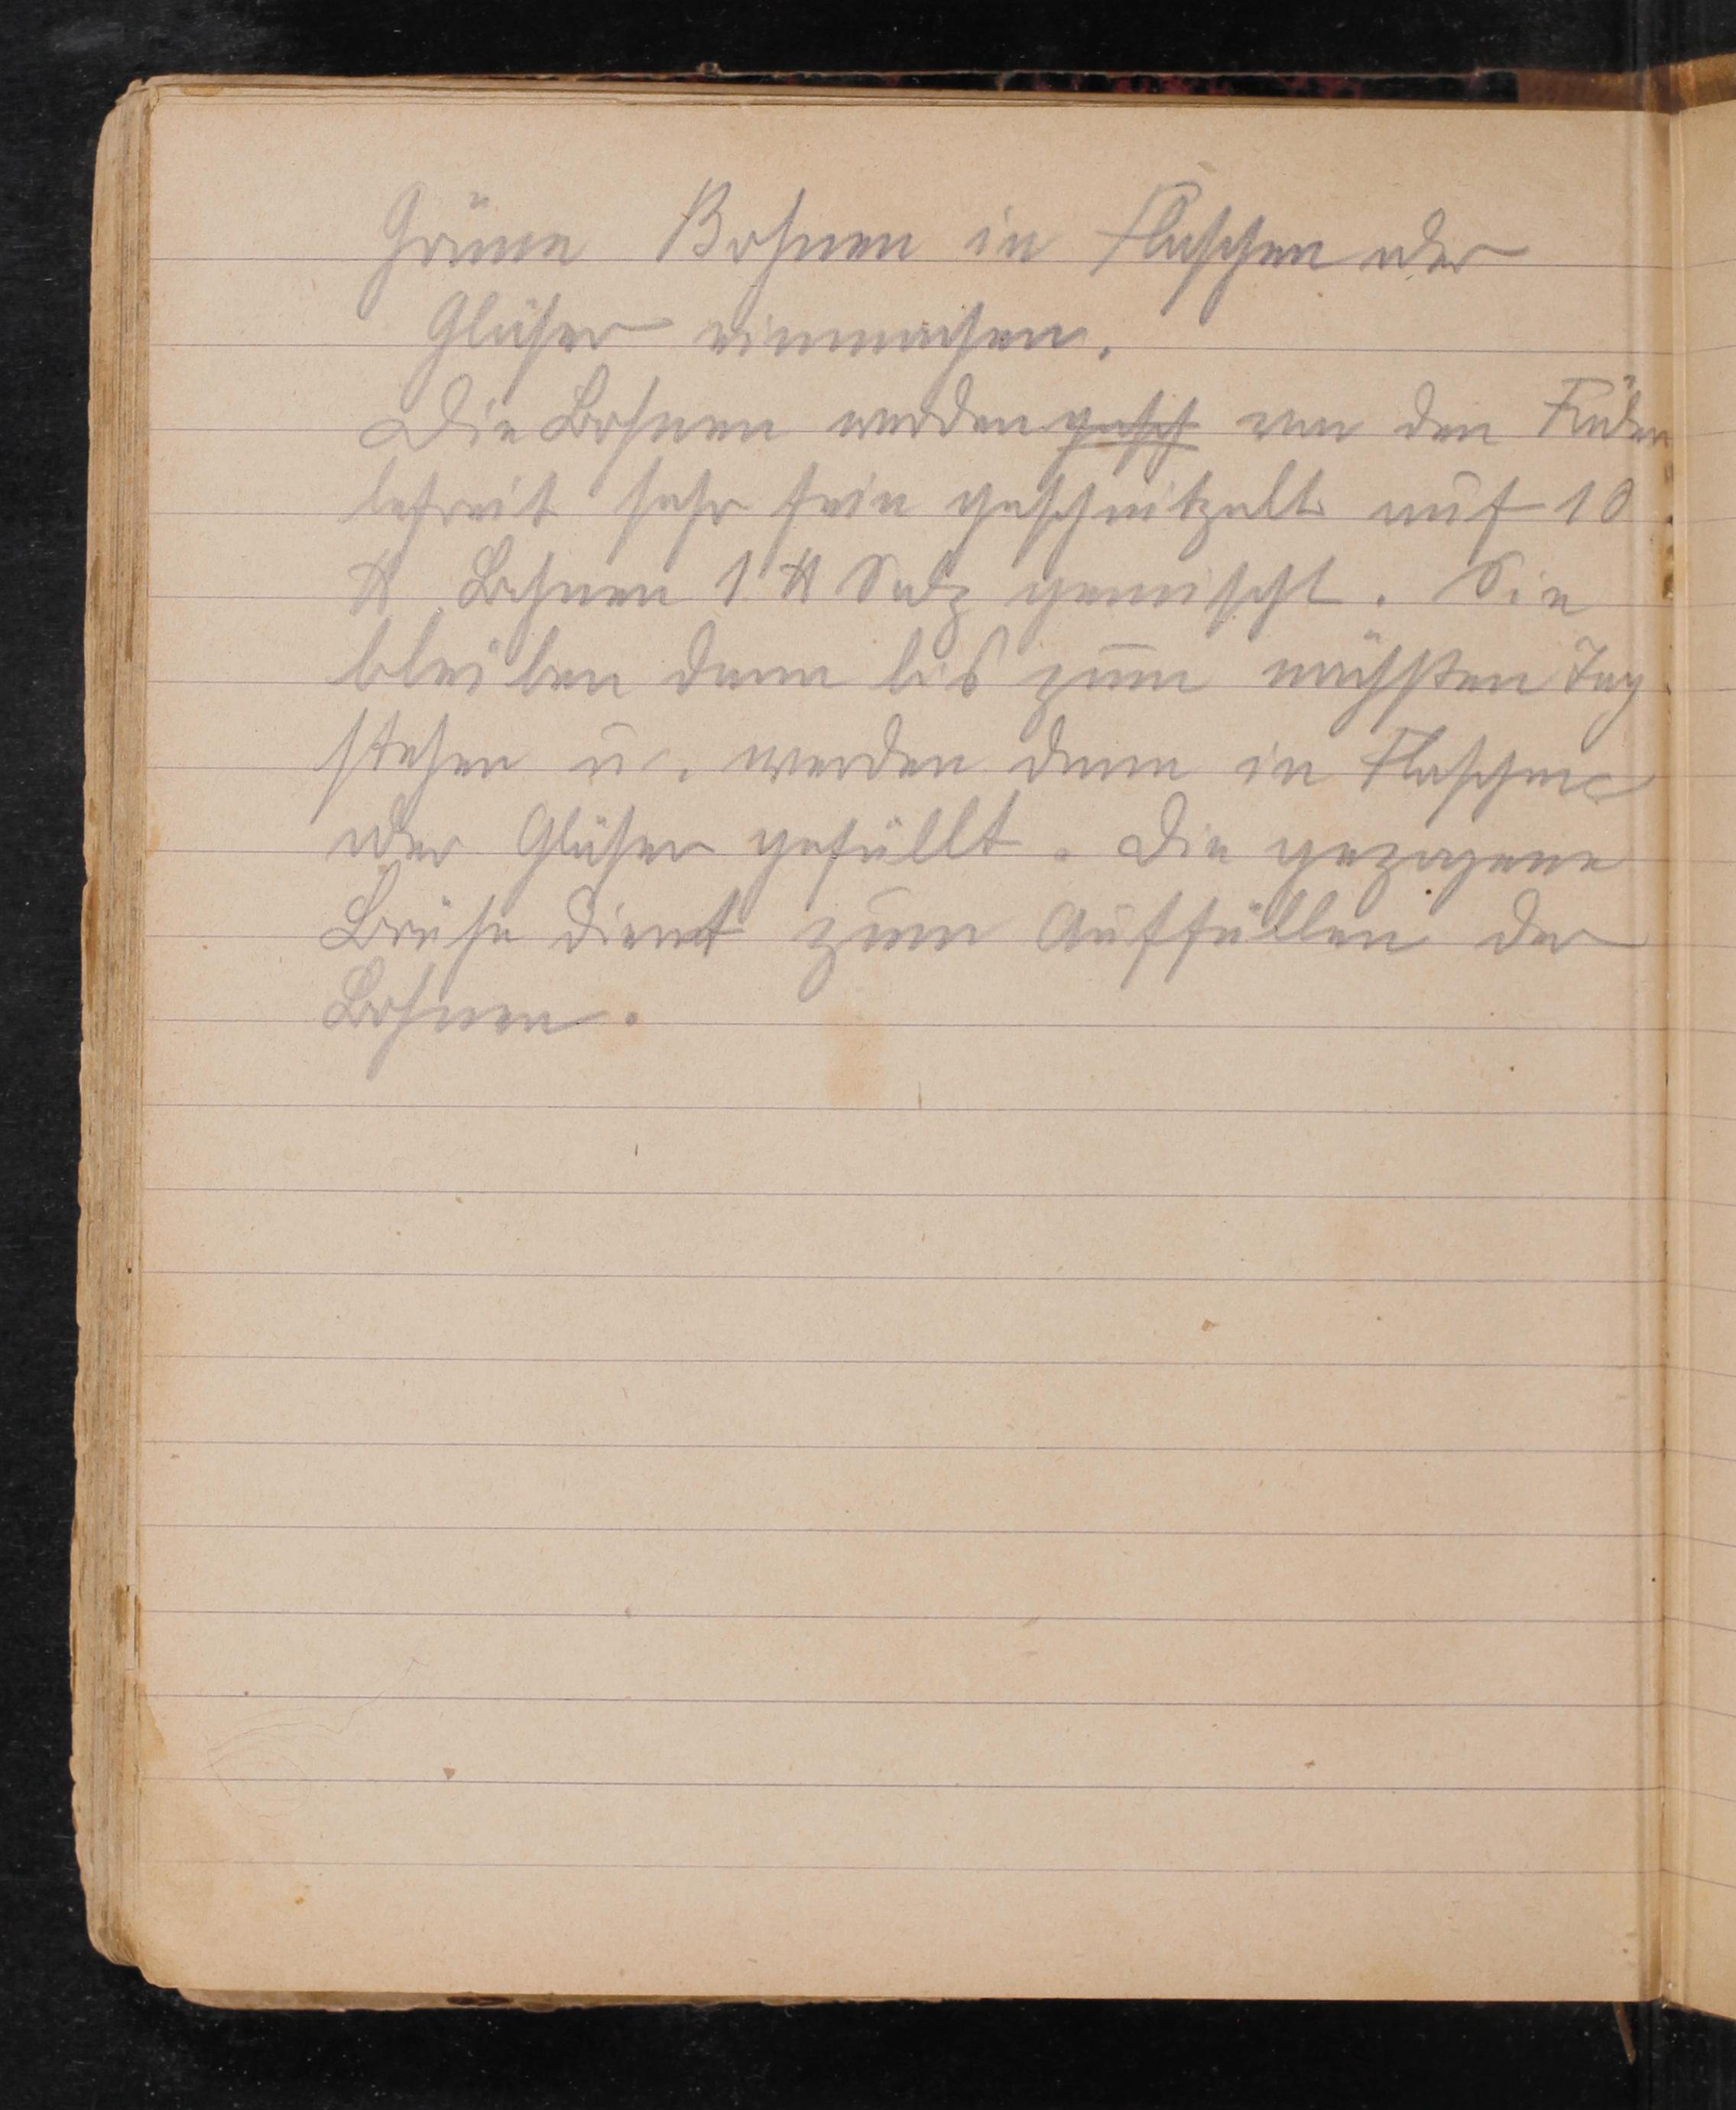 Grüne Bohnen in Flaschen oder
Gläser einmachen.
Die Bohnen werden gesch von den Fäden
befreit sehr fein geschnitzelt auf 10
℔ Bohnen 1 ℔ Salz gemischt. Sie
bleiben dann bis zum nächsten Tag
stehen u. werden dann in Flaschen
oder Gläser gefüllt. Die gezogene
Brühe dient zum Auffüllen der
Bohnen.